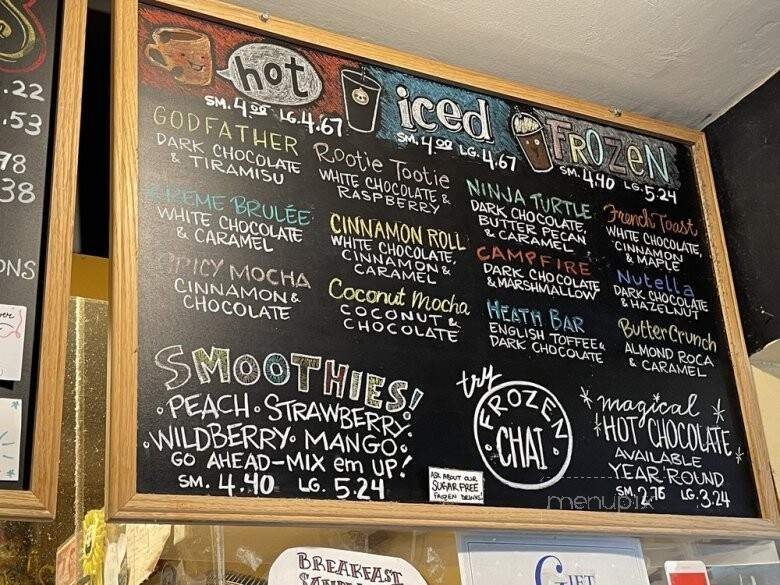 .22
.53
78
38
ONS
hot
SM. 4.00 LG. 4.67
iced
SM. 4.00 LG. 4.67
FROZEN
SM. 4.40 LG. 5.24
GODFATHER
DARK CHOCOLATE
& TIRAMISU
CREME BRULÉE
WHITE CHOCOLATE
& CARAMEL
SPICY MOCHA
CINNAMON &
CHOCOLATE
Rootie Tootie
WHITE CHOCOLATE &
RASPBERRY
CINNAMON ROLL
WHITE CHOCOLATE,
CINNAMON &
CARAMEL
Coconut Mocha
COCONUT &
CHOCOLATE
NINJA TURTLE
DARK CHOCOLATE,
BUTTER PECAN
& CARAMEL
CAMPFIRE
DARK CHOCOLATE
& MARSHMALLOW
HEATH BAR
ENGLISH TOFFEE &
DARK CHOCOLATE
French Toast
WHITE CHOCOLATE,
CINNAMON
& MAPLE
Nutella
DARK CHOCOLATE
& HAZELNUT
Butter Crunch
ALMOND ROCA
& CARAMEL
SMOOTHIES!
• PEACH • STRAWBERRY •
• WILDBERRY • MANGO •
GO AHEAD-MIX em UP!
SM. 4.40 LG. 5.24
try
FROZEN
CHAI
ASK ABOUT OUR
SUGAR FREE
FROZEN DRINKS!
magical
HOT CHOCOLATE
AVAILABLE
YEAR ROUND
SM. 2.76 LG. 3.24
menupix
BREAKFAST
GIFT